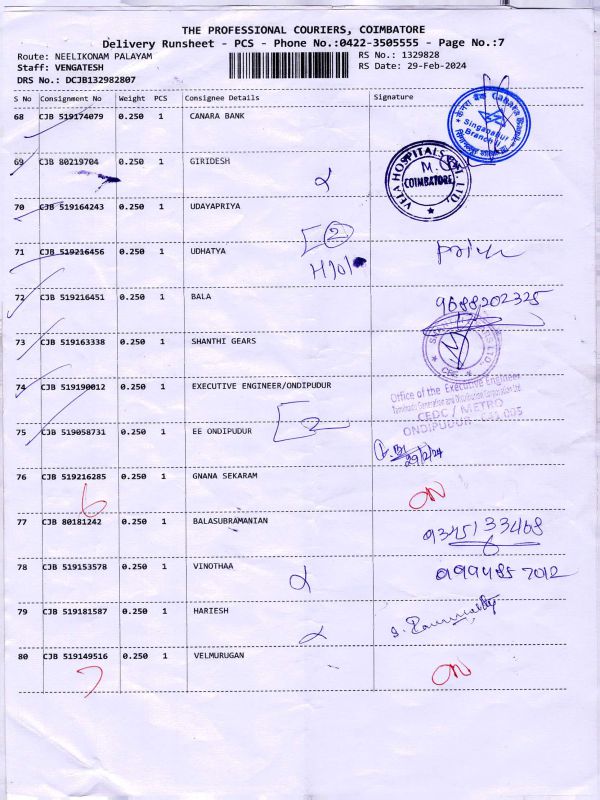 THE PROFESSIONAL COURIERS, COIMBATORE
Delivery Runsheet - PCS - Phone No.:0422-3505555 - Page No.:7
Route: NEELIKONAM PALAYAM RS No.: 1329828
Staff: VENGATESH RS Date: 29-Feb-2024
DRS No.: DCJB132982807
S No Consignment No Weight PCS Consignee Details Signature
68 CJB 519174079 0.250 1 CANARA BANK
केनरा बैंक Canara Bank
Singanapur
Branch II
69 CJB 80219704 0.250 1 GIRIDESH
VELA HOSPITALS PVT. LTD
COIMBATORE
70 CJB 519164243 0.250 1 UDAYAPRIYA
2
71 CJB 519216456 0.250 1 UDHATYA Priya
72 CJB 519216451 0.250 1 BALA 9688202325
73 CJB 519163338 0.250 1 SHANTHI GEARS
CBE
74 CJB 519190012 0.250 1 EXECUTIVE ENGINEER/ONDIPUDUR
Office of the Executive Engineer
Tamilnadu Generation and Distribution Corporation Ltd
CEDC / METRO
ONDIPUDUR
75 CJB 519058731 0.250 1 EE ONDIPUDUR
2
29/2/24
76 CJB 519216285 0.250 1 GNANA SEKARAM
6 ON
77 CJB 80181242 0.250 1 BALASUBRAMANIAN 9345133468
78 CJB 519153578 0.250 1 VINOTHAA 999485 7012
79 CJB 519181587 0.250 1 HARIESH
80 CJB 519149516 0.250 1 VELMURUGAN
7 ON